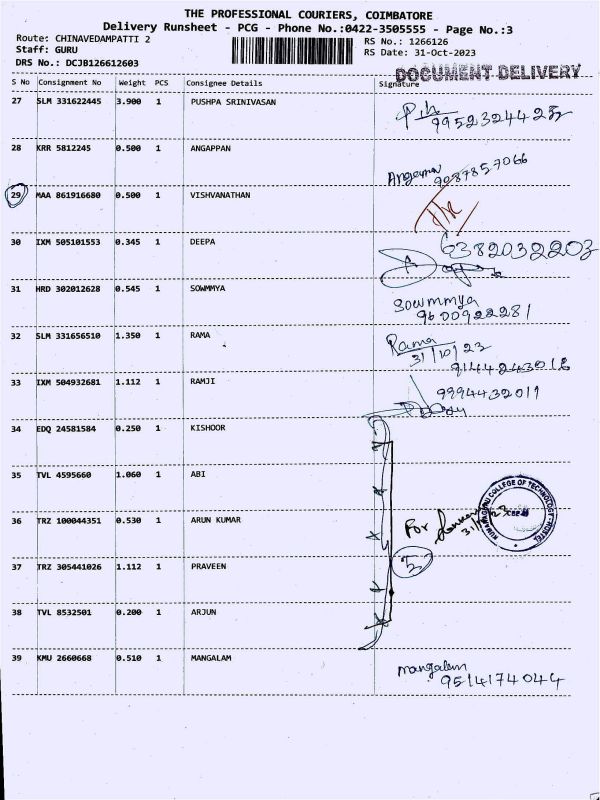 THE PROFESSIONAL COURIERS, COIMBATORE
Delivery Runsheet - PCG - Phone No.:0422-3505555 - Page No.:3
Route: CHINAVEDAMPATTI 2 RS No.: 1266126
Staff: GURU RS Date: 31-Oct-2023
DRS No.: DCJB126612603
DOCUMENT DELIVERY
S No Consignment No Weight PCS Consignee Details Signature
27 SLM 331622445 3.900 1 PUSHPA SRINIVASAN
28 KRR 5812245 0.500 1 ANGAPPAN
9087857066
29 MAA 861916680 0.500 1 VISHVANATHAN
30 IXM 505101553 0.345 1 DEEPA 6382032203
31 HRD 302012628 0.545 1 SOWMMYA
Sowmmya
9600922281
32 SLM 331656510 1.350 1 RAMA Rama
31/10/23
33 IXM 504932681 1.112 1 RAMJI 9994432011
34 EDQ 24581584 0.250 1 KISHOOR
35 TVL 4595660 1.060 1 ABI
36 TRZ 100044351 0.530 1 ARUN KUMAR For
KUMARAGURU COLLEGE OF TECHNOLOGY HOSTEL
37 TRZ 305441026 1.112 1 PRAVEEN 5
38 TVL 8532501 0.200 1 ARJUN
39 KMU 2660668 0.510 1 MANGALAM Mangalam
9514174044